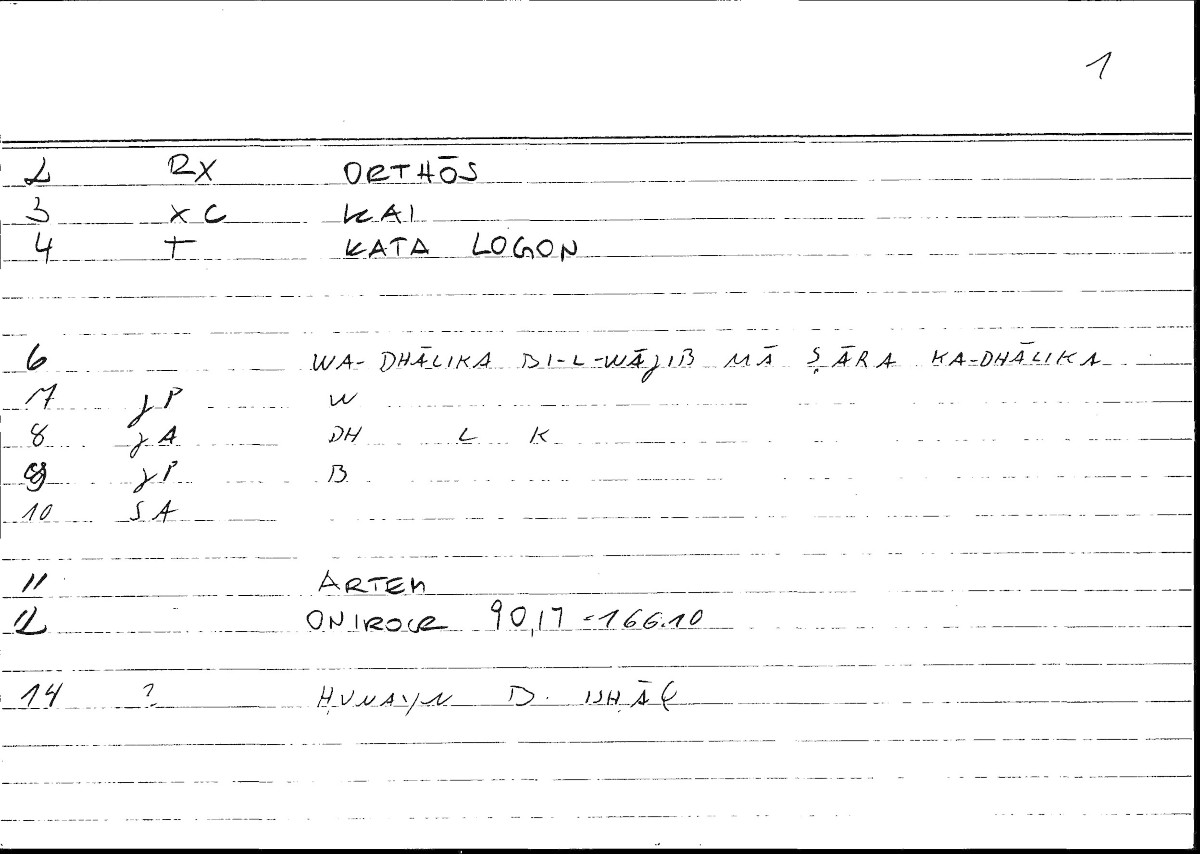 1
2 RX ORTHŌS
3 XC KAI
4 T KATA LOGON
6 WA-DHĀLIKA BI-L-WĀJIB MĀ ṢĀRA KA-DHĀLIKA
7 JP W
8 JA DH L K
9 JP B
10 SA
11 ARTEM
12 ONIROCR 90,17 = 166.10
14 ? ḤUNAYN B. ISḤĀQ